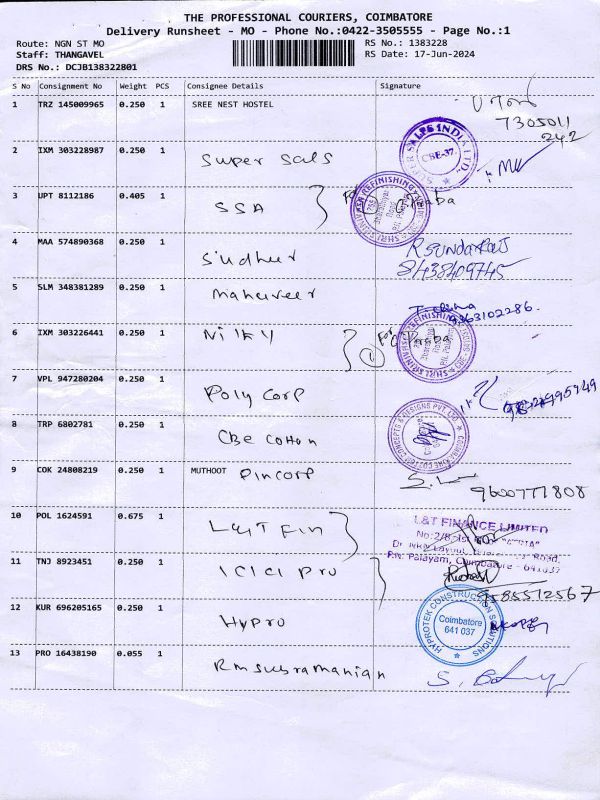 THE PROFESSIONAL COURIERS, COIMBATORE
Delivery Runsheet - MO - Phone No.:0422-3505555 - Page No.:1
Route: NGN ST MO
RS No.: 1383228
Staff: THANGAVEL
RS Date: 17-Jun-2024
DRS No.: DCJB138322801
S No Consignment No Weight PCS Consignee Details Signature
1 TRZ 145009965 0.250 1 SREE NEST HOSTEL
7305011
242
2 IXM 303228987 0.250 1 Super Sals
SUPER SALES INDIA LTD.,
CBE-37
3 UPT 8112186 0.405 1 SSA
For
4 MAA 574890368 0.250 1 Sudheer R SUNDARRAJ
8438409745
5 SLM 348381289 0.250 1 Mahaveer
9363102286.
6 IXM 303226441 0.250 1 Nilky
For
1
7 VPL 947280204 0.250 1 Poly Corp
8 TRP 6802781 0.250 1 CBe Cotton
9 COK 24808219 0.250 1 MUTHOOT Pincorp
9600777808
10 POL 1624591 0.675 1 L&T Fin
L&T FINANCE LIMITED
P.N. Palayam, Coimbatore - 641037
11 TNJ 8923451 0.250 1 ICICI Pru
9585512567
12 KUR 696205165 0.250 1 Hypro
HYPROTEK CONSTRUCTION SOLUTIONS
Coimbatore
641 037
13 PRO 16438190 0.055 1 Rmsubramanian